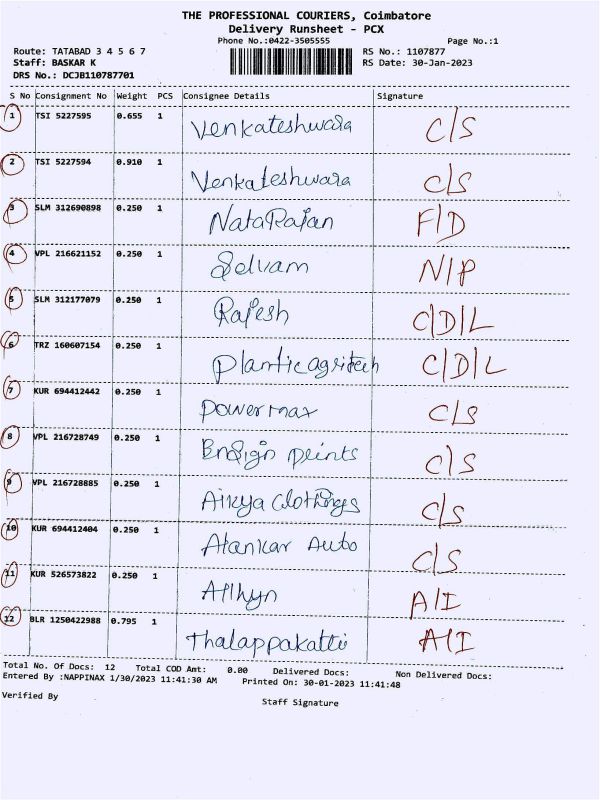 THE PROFESSIONAL COURIERS, Coimbatore
Delivery Runsheet - PCX
Phone No.:0422-3505555 Page No.:1
Route: TATABAD 3 4 5 6 7 RS No.: 1107877
Staff: BASKAR K RS Date: 30-Jan-2023
DRS No.: DCJB110787701
S No Consignment No Weight PCS Consignee Details Signature
1 TSI 5227595 0.655 1 Venkateshwara C/S
2 TSI 5227594 0.910 1 Venkateshwara C/S
3 SLM 312690898 0.250 1 NataRajan F/D
4 VPL 216621152 0.250 1 Selvam N/P
5 SLM 312177079 0.250 1 Rajesh C/D/L
6 TRZ 160607154 0.250 1 Planticagritech C/D/L
7 KUR 694412442 0.250 1 Powermax C/S
8 VPL 216728749 0.250 1 prints C/S
9 VPL 216728885 0.250 1 Aikya Clothings C/S
10 KUR 694412404 0.250 1 Alankar Auto C/S
11 KUR 526573822 0.250 1 A/I
12 BLR 1250422988 0.795 1 Thalappakatti A/I
Total No. Of Docs: 12 Total COD Amt: 0.00 Delivered Docs: Non Delivered Docs:
Entered By :NAPPINAX 1/30/2023 11:41:30 AM Printed On: 30-01-2023 11:41:48
Verified By Staff Signature